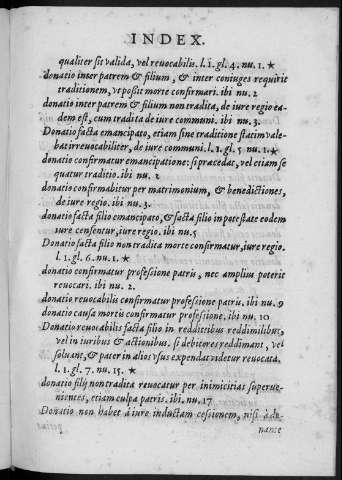 INDEX.
qualiter sit valida, vel revocabilis. l. 1. gl. 4. nu. 1. ★
donatio inter patrem & filium, & inter coniuges requirit
traditionem, vt possit morte confirmari. ibi nu. 2
donatio inter patrem & filium non tradita, de iure regio ea-
dem est, cum tradita de iure communi. ibi nu. 3.
Donatio facta emancipato, etiam sine traditione statim vale-
bat irreuocabiliter, de iure communi. l. 1. gl. 5 nu. 1. ★
donatio confirmatur emancipatione: si præcedat, vel etiam se
quatur traditio. ibi nu. 2
donatio confirmabitur per matrimonium, & benedictiones,
de iure regio. ibi nu. 3.
donatio facta filio emancipato, & facta filio in potestate eodem
iure censentur, iure regio. ibi nu. 5
Donatio facta filio non tradita morte confirmatur, iure regio.
l. 1. gl. 6. nu. 1. ★
donatio confirmatur professione patris, nec amplius poterit
reuocari. ibi nu. 2.
donatio reuocabilis confirmatur professione patris. ibi nu. 9
donatio causa mortis confirmatur professione. ibi nu. 10
Donatio reuocabilis facta filio in redditibus reddimilibus,
vel in iuribus & actionibus. si debitores reddimant, vel
soluant, & pater in alios vsus expendat videtur reuocata.
l. 1. gl. 7. nu. 15. ★
donatio filij non tradita reuocatur per inimicitias superue-
nientes, etiam culpa patris. ibi. nu. 17
Donatio non habet à iure inductam cessionem, nisi à do-
nante